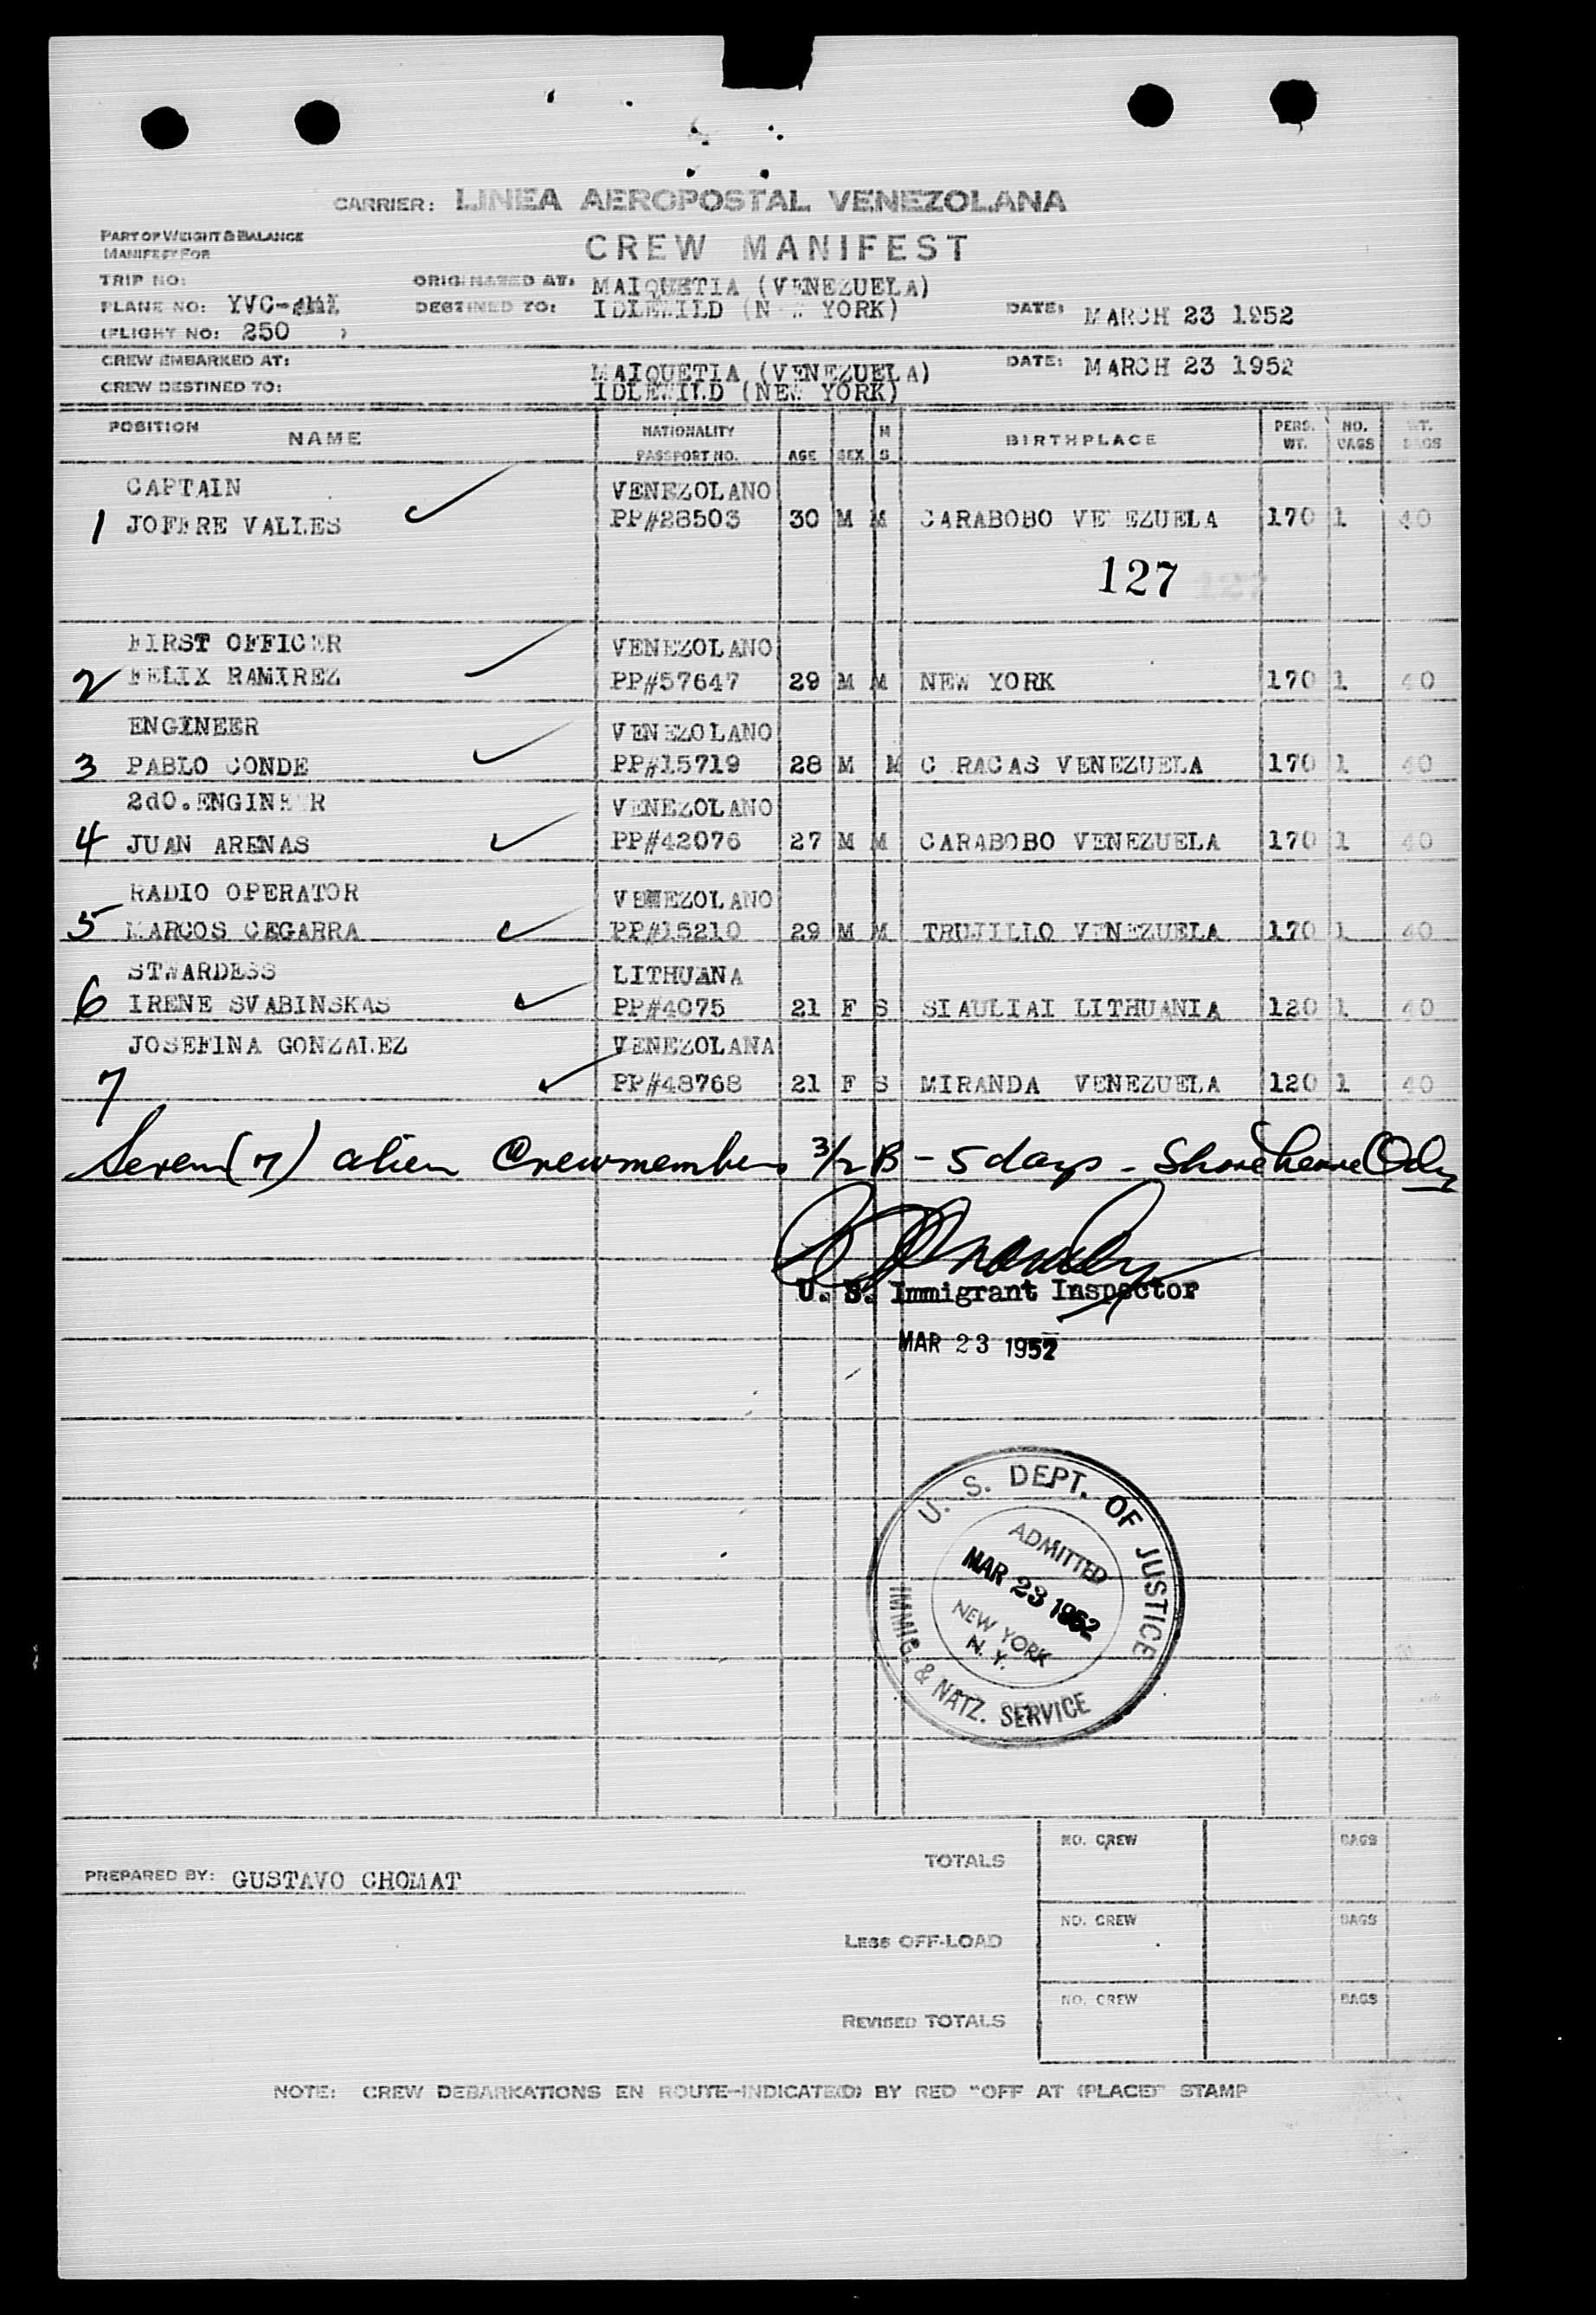 CARRIER: LINEA AEROPOSTAL VENEZOLANA
PART OF WEIGHT & BALANCE
MANIFEST FOR
CREW MANIFEST
TRIP NO: ORIGINATED AT: MAIQUETIA (VENEZUELA)
PLANE NO: YVC- DESTINED TO: IDLEWILD (NEW YORK) DATE: MARCH 23 1952
(FLIGHT NO: 250 )
CREW EMBARKED AT: MAIQUETIA (VENEZUELA) DATE: MARCH 23 1952
CREW DESTINED TO: IDLEWILD (NEW YORK)
POSITION NAME NATIONALITY PASSPORT NO. AGE SEX M S BIRTHPLACE PERS. WT. NO. BAGS WT. BAGS
CAPTAIN VENEZOLANO
1 JOFFRE VALLES PP#28503 30 M M CARABOBO VENEZUELA 170 1 40
127
FIRST OFFICER VENEZOLANO
2 FELIX RAMIREZ PP#57647 29 M M NEW YORK 170 1 40
ENGINEER VENEZOLANO
3 PABLO CONDE PP#15719 28 M M CARACAS VENEZUELA 170 1 40
2dO.ENGINEER VENEZOLANO
4 JUAN ARENAS PP#42076 27 M M CARABOBO VENEZUELA 170 1 40
RADIO OPERATOR VENEZOLANO
5 MARCOS CEGARRA PP#15210 29 M M TRUJILLO VENEZUELA 170 1 40
STWARDESS LITHUANA
6 IRENE SVABINSKAS PP#4075 21 F S SIAULIAI LITHUANIA 120 1 40
JOSEFINA GONZALEZ VENEZOLANA
7 PP#48768 21 F S MIRANDA VENEZUELA 120 1 40
Seven (7) alien Crewmembers 3/2 B - 5 days - Shore Leave Only
U. S. Immigrant Inspector
MAR 23 1952
U. S. DEPT. OF JUSTICE
ADMITTED
MAR 23 1952
NEW YORK
N. Y.
IMMIG. & NATZ. SERVICE
PREPARED BY: GUSTAVO CHOMAT
TOTALS NO. CREW BAGS
LESS OFF-LOAD NO. CREW BAGS
REVISED TOTALS NO. CREW BAGS
NOTE: CREW DEBARKATIONS EN ROUTE-INDICATE(D) BY RED "OFF AT (PLACE)" STAMP